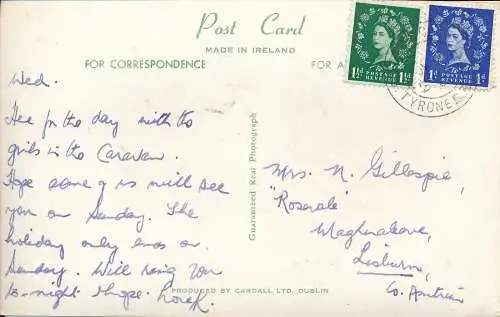 Post Card
MADE IN IRELAND
FOR CORRESPONDENCE
FOR A
1½d POSTAGE REVENUE 1½d
1d POSTAGE REVENUE 1d
TYRONE
Wed.
Here for the day with the
girls in the Caravan.
Hope some of us will see
you on Sunday. The
holiday only ends on
Sunday. Will ring you
to-night I hope.
Guaranteed Real Photograph
Mrs. N. Gillespie,
"Roseval"
Magheralave,
Lisburn,
Co. Antrim
PRODUCED BY CARDALL LTD. DUBLIN